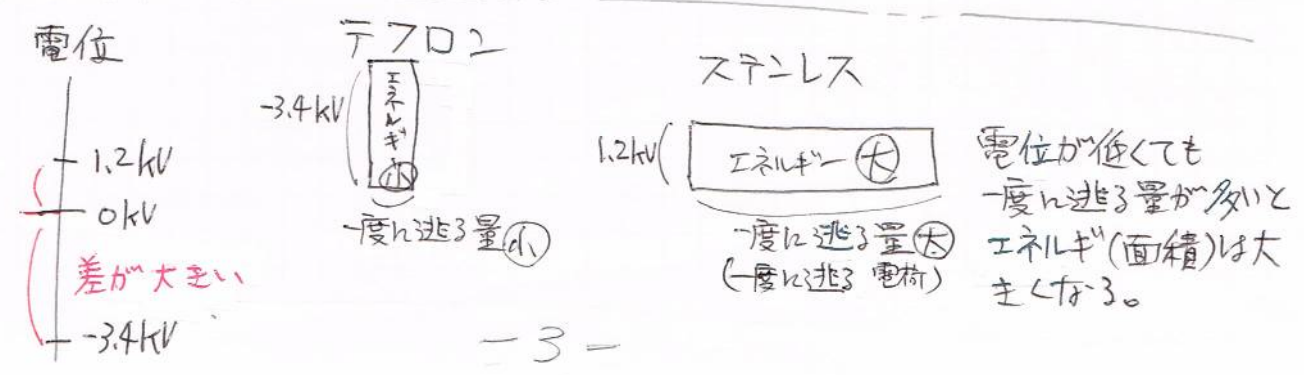 電位
1.2kV
0kV
差が大きい
-3.4kV
テフロン
-3.4kV
エネルギ小
一度に逃る量小
ステンレス
1.2kV
エネルギー大
一度に逃る量大
(一度に逃る電荷)
電位が低くても
一度に逃る量が多いと
エネルギ(面積)は大
きくなる。
-3-